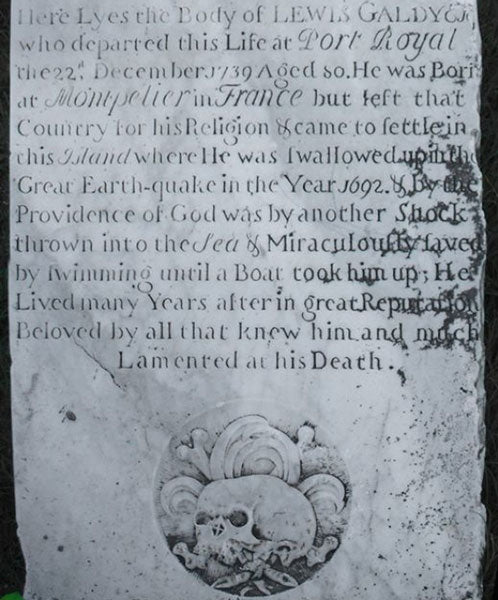 Here Lyes the Body of LEWIS GALDY Esq.
who departed this Life at Port Royal
the 22.d December 1739 Aged 80. He was Born
at Montpelier in France but left that
Country for his Religion & came to settle in
this Island where He was swallowed up in the
Great Earth-quake in the Year 1692. & by the
Providence of God was by another Shock
thrown into the Sea & Miraculously saved
by swimming until a Boat took him up; He
Lived many Years after in great Reputation
Beloved by all that knew him and much
Lamented at his Death.